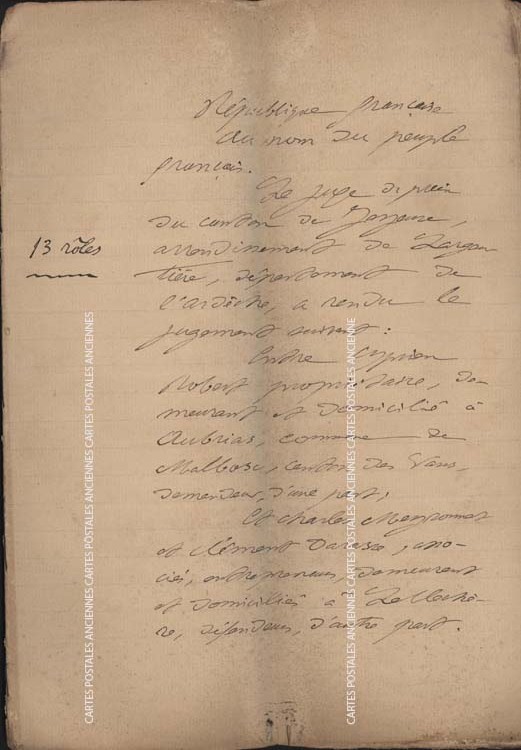 République française
Au nom du peuple
français.
Le juge de paix
du canton de Joyeuse,
13 rôles
arrondissement de Largen
tière, département de
l'ardèche, a rendu le
jugement suivant :
Entre Cyprien
Robert propriétaire, de-
meurant et domicilié à
Aubrias, commune de
Malbosc, canton des Vans,
demandeur, d'une part,
Et Charles Meyronnet
et Clément , asso-
ciés, entrepreneurs, demeurant
et domiciliés à
re, défendeurs, d'autre part.
CARTES POSTALES ANCIENNES CARTES POSTALES ANCIENNES CARTES POSTALES ANCIENNES
CARTES POSTALES ANCIENNES CARTES POSTALES ANCIENNES CARTES POSTALES ANCIENNE